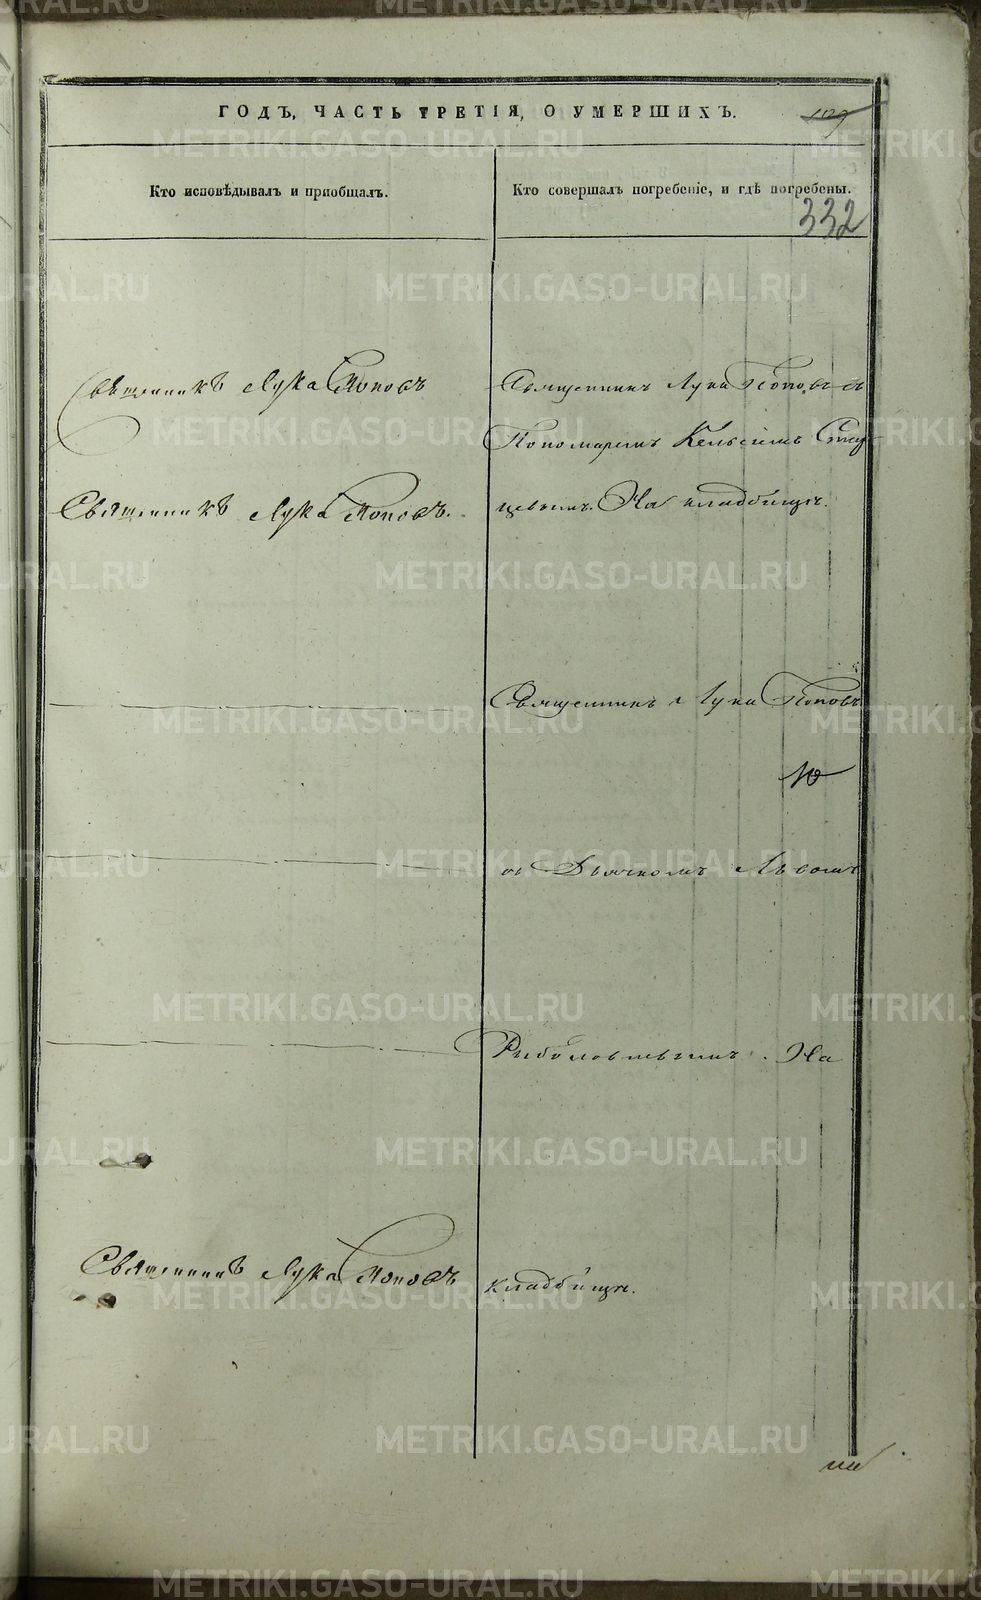 ГОДЪ, ЧАСТЬ ТРЕТІЯ, О УМЕРШИХЪ.
109
Кто исповѣдывалъ и пріобщалъ.
Кто совершалъ погребеніе, и гдѣ погребены.
332
Священникъ Лука Поповъ
Священникъ Лука Поповъ съ
Пономаремъ Кельсіемъ
Священникъ Лука Поповъ.
На кладбищѣ.
Священникъ Лука Поповъ
съ Дьячкомъ Львомъ
На
Священникъ Лука Поповъ
кладбищѣ.
METRIKI.GASO-URAL.RU